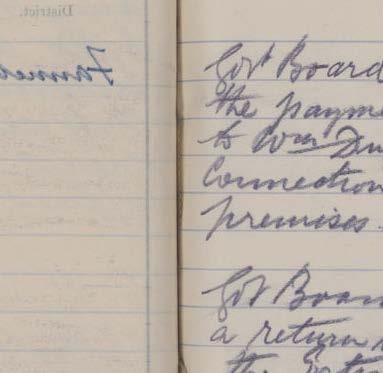 District.
Govt Board
the payme
to Wm Du
Connection
premises.
Govt Boar
a return
the